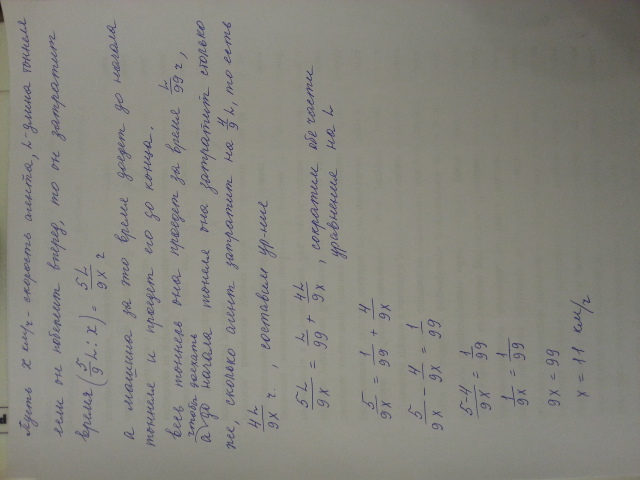 Пусть x км/ч - скорость агента, L длина тоннеля
если он побежит вперед, то он затратит
время (5/9 L : x) = 5L/9x ч
а машина за это время доедет до начала
тоннеля и проедет его до конца.
весь тоннель она проедет за время L/99 ч,
чтобы доехать
а до начала тоннеля она затратит столько
же, сколько агент затратит на 4/9 L, то есть
4L/9x ч. , составим ур-ние
5L/9x = L/99 + 4L/9x , сократим обе части
уравнения на L
5/9x = 1/99 + 4/9x
5/9x - 4/9x = 1/99
5-4/9x = 1/99
1/9x = 1/99
9x = 99
x = 11 км/ч